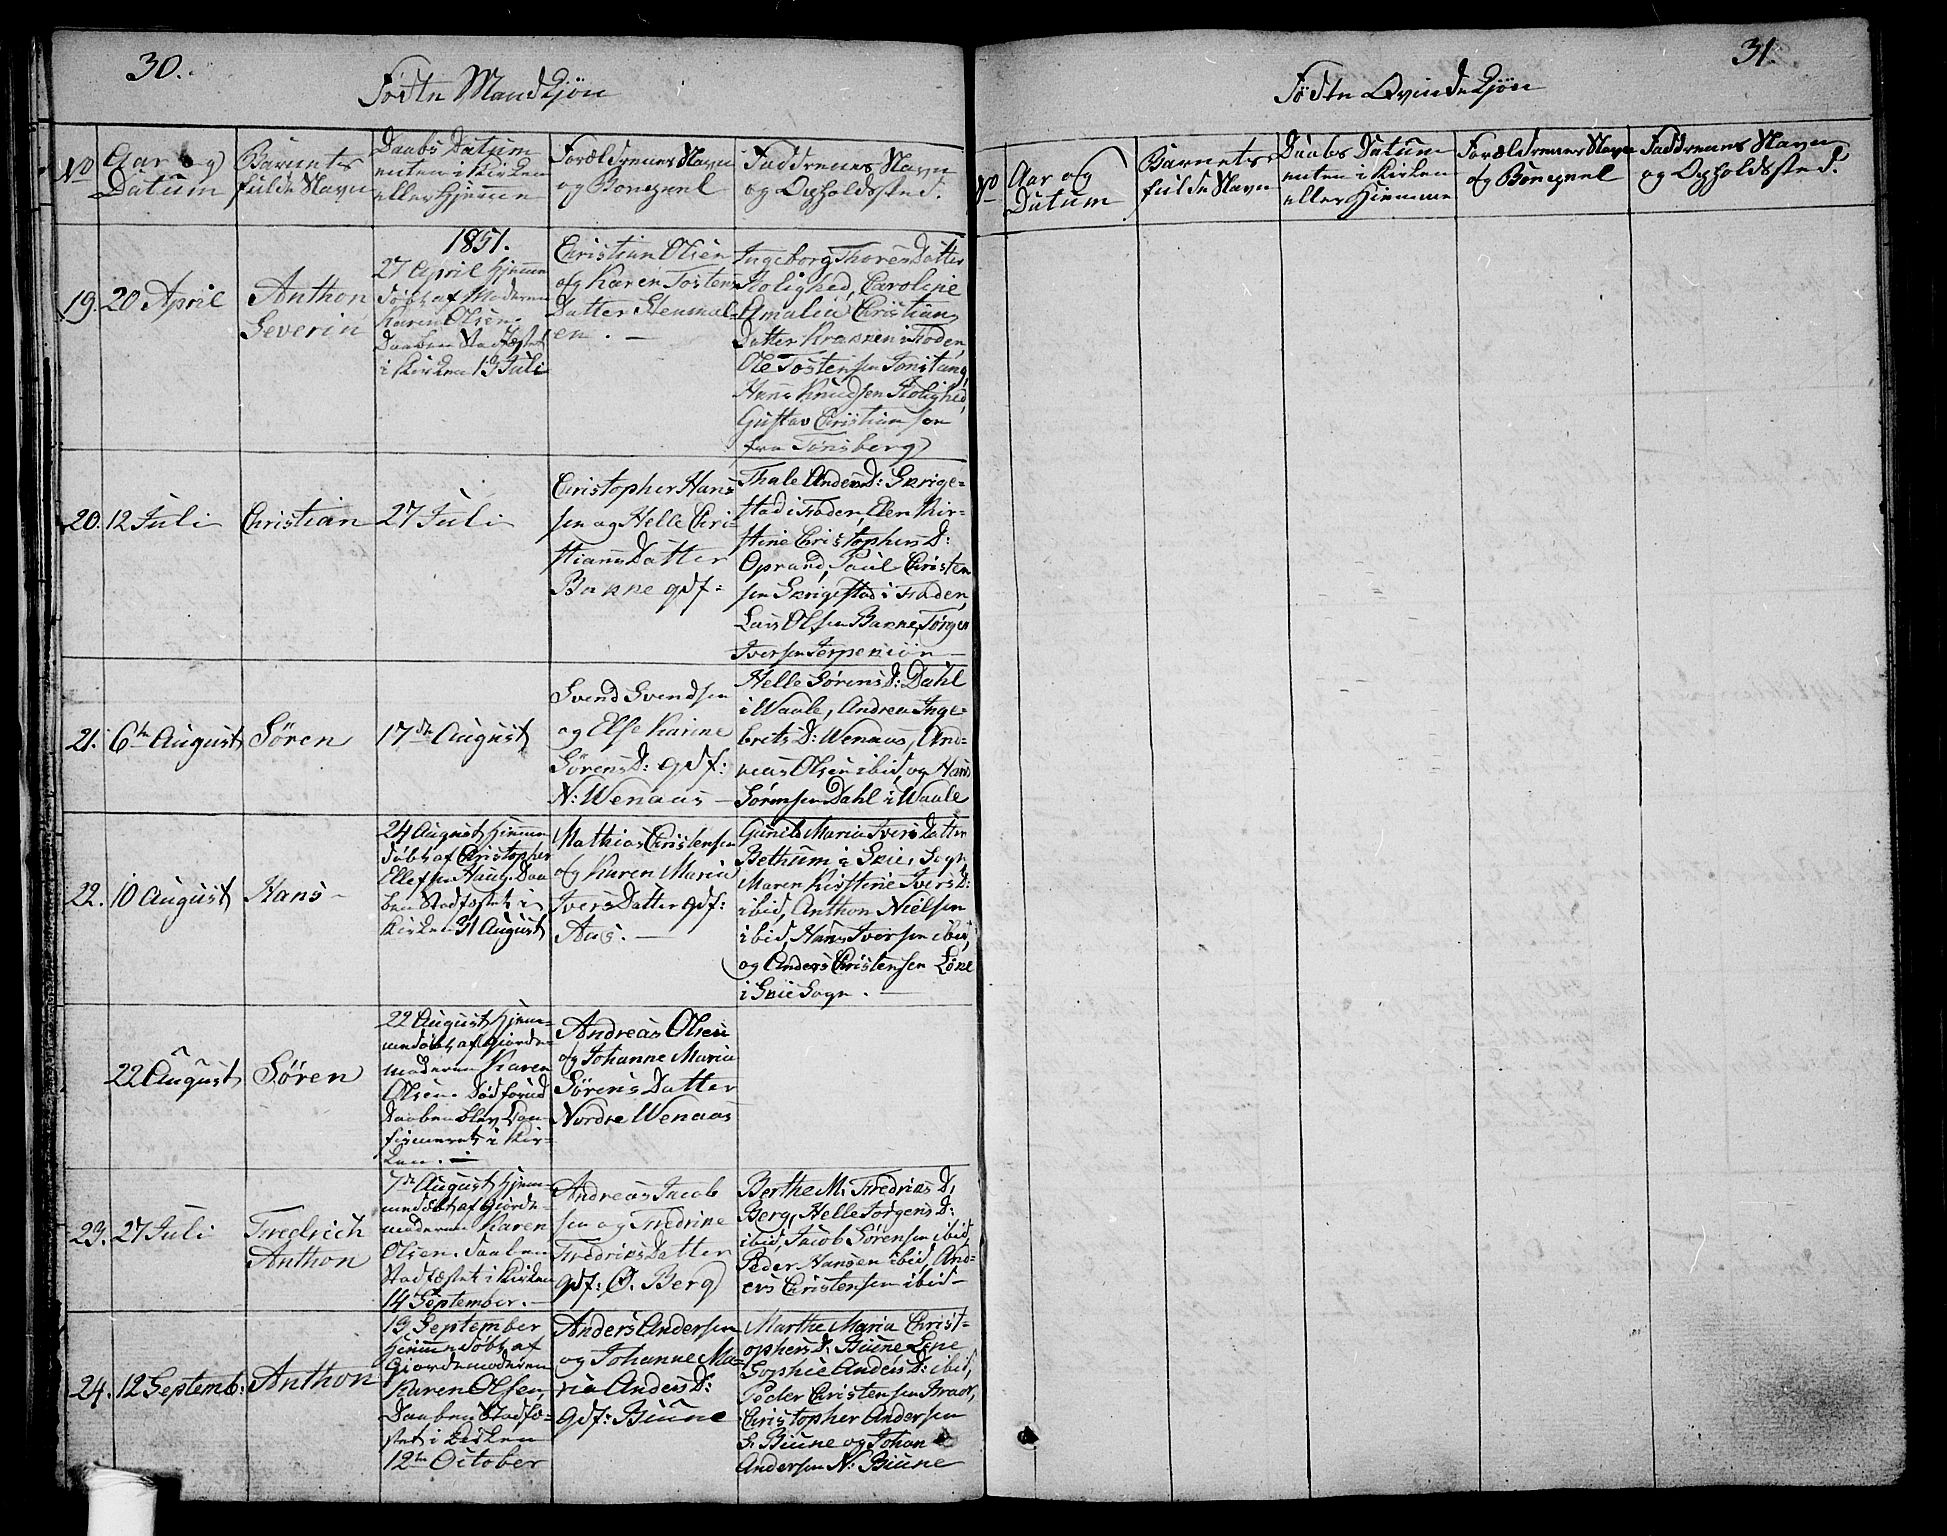 30.
Fødte Mandkjøn
No
Aar og
Datum
Barnets
fulde Navn
Daabs Datum
enten i Kirken
eller Hjemme
Forældrenes Navn
og Boepæl
Faddrenes Navn
og Opholdssted.
1851.
19.
20 April
Anthon
Severin
27 April Hjemme
døbt af Moderen
Karen Olsen.
Daaben Stadfæstet
i Kirken 13 Juli
Christian Olsen
og Karen Tostens
Datter Stenmal-
en. —
Ingeborg Thores Datter
Rolighed, Caroline
Amalia Christians
Datter Krakken i Floden,
Ole Tostensen Tonstang,
Hans Knudsen Rolighed,
Gustav Christiansen
fra Tønsberg
20.
12 Juli
Christian
27 Juli
Christopher Hans
sen og Helle Chri-
stians Datter
Bakke gdf:
Thale Anders D: Skrige-
stad i Floden, Elen Kir-
stine Christophers D:
Oprand, Paul Christen
sen Skrigestad i Floden,
Lars Olsen Bakke, Jørgen
Iversen Jerpekiön —
21.
6te August
Søren
17de August
Svend Svendsen
og Else Karine
Sørens D: gdf:
N: Wenaas —
Helle Sørens D: Dahl
i Waale, Andrea Inge-
brets D: Wenaas, And-
reas Olsen ibid, og Hans
Sørensen Dahl i Waale
22.
10 August
Hans —
24 August Hjemme
døbt af Christopher
Ellefsen Haug. Daa
ben Stadfæstet i
Kirken 31 August
Mathias Christensen
og Karen Maria
Ivers Datter gdf:
Aas. —
Gunild Maria Ivers Datter
Bethum i Skie, Sogn,
Maren Kirstine Ivers D:
ibid, Anthon Nielsen
ibid, Hans Iversen ibid,
og Anders Christensen Løke
i Skie Sogn. —
22 August
Søren
22 August Hjem-
medøbt af Giorde-
moderen Karen
Olsen. Død forud
Daaben blev Con
firmeret i Kir-
ken. —
Andreas Olsen
og Johanne Maria
Sørens Datter
Nordre Wenaas
23.
27 Juli
Fredrich
Anthon
7de August Hjem-
medøbt af Giorde-
moderen Karen
Olsen. Daaben
Stadfæstet i Kirken
14 September. —
Andreas Jacob
sen og Fredrikke
Fredriks Datter
gdf: Ø. Berg
Berthe M. Fredriks D,
Berg, Helle Jørgens D:
ibid, Jacob Sørensen ibid,
Peder Hansen ibid, And-
ers Christensen ibid —
24.
12 Septemb:
Anthon
19 September
Hjemmedøbt af
Giordemoderen
Karen Olsen,
Daaben Stadfæ-
stet i Kirken
12te October
Anders Andersen
og Johanne Ma-
ria Anders D:
gdf: Biune
Marthe Maria Christ-
ophers D: Biune, Lene
Sophie Anders D: ibid,
Peder Christensen
Christopher Andersen
S. Biune og Johan
Andersen N: Biune
31.
Fødte Qvindekjøn
No
Aar og
Datum
Barnets
fulde Navn
Daabs Datum
enten i Kirken
eller Hjemme
Forældrenes Navn
og Boepæl
Faddrenes Navn
og Opholdssted.